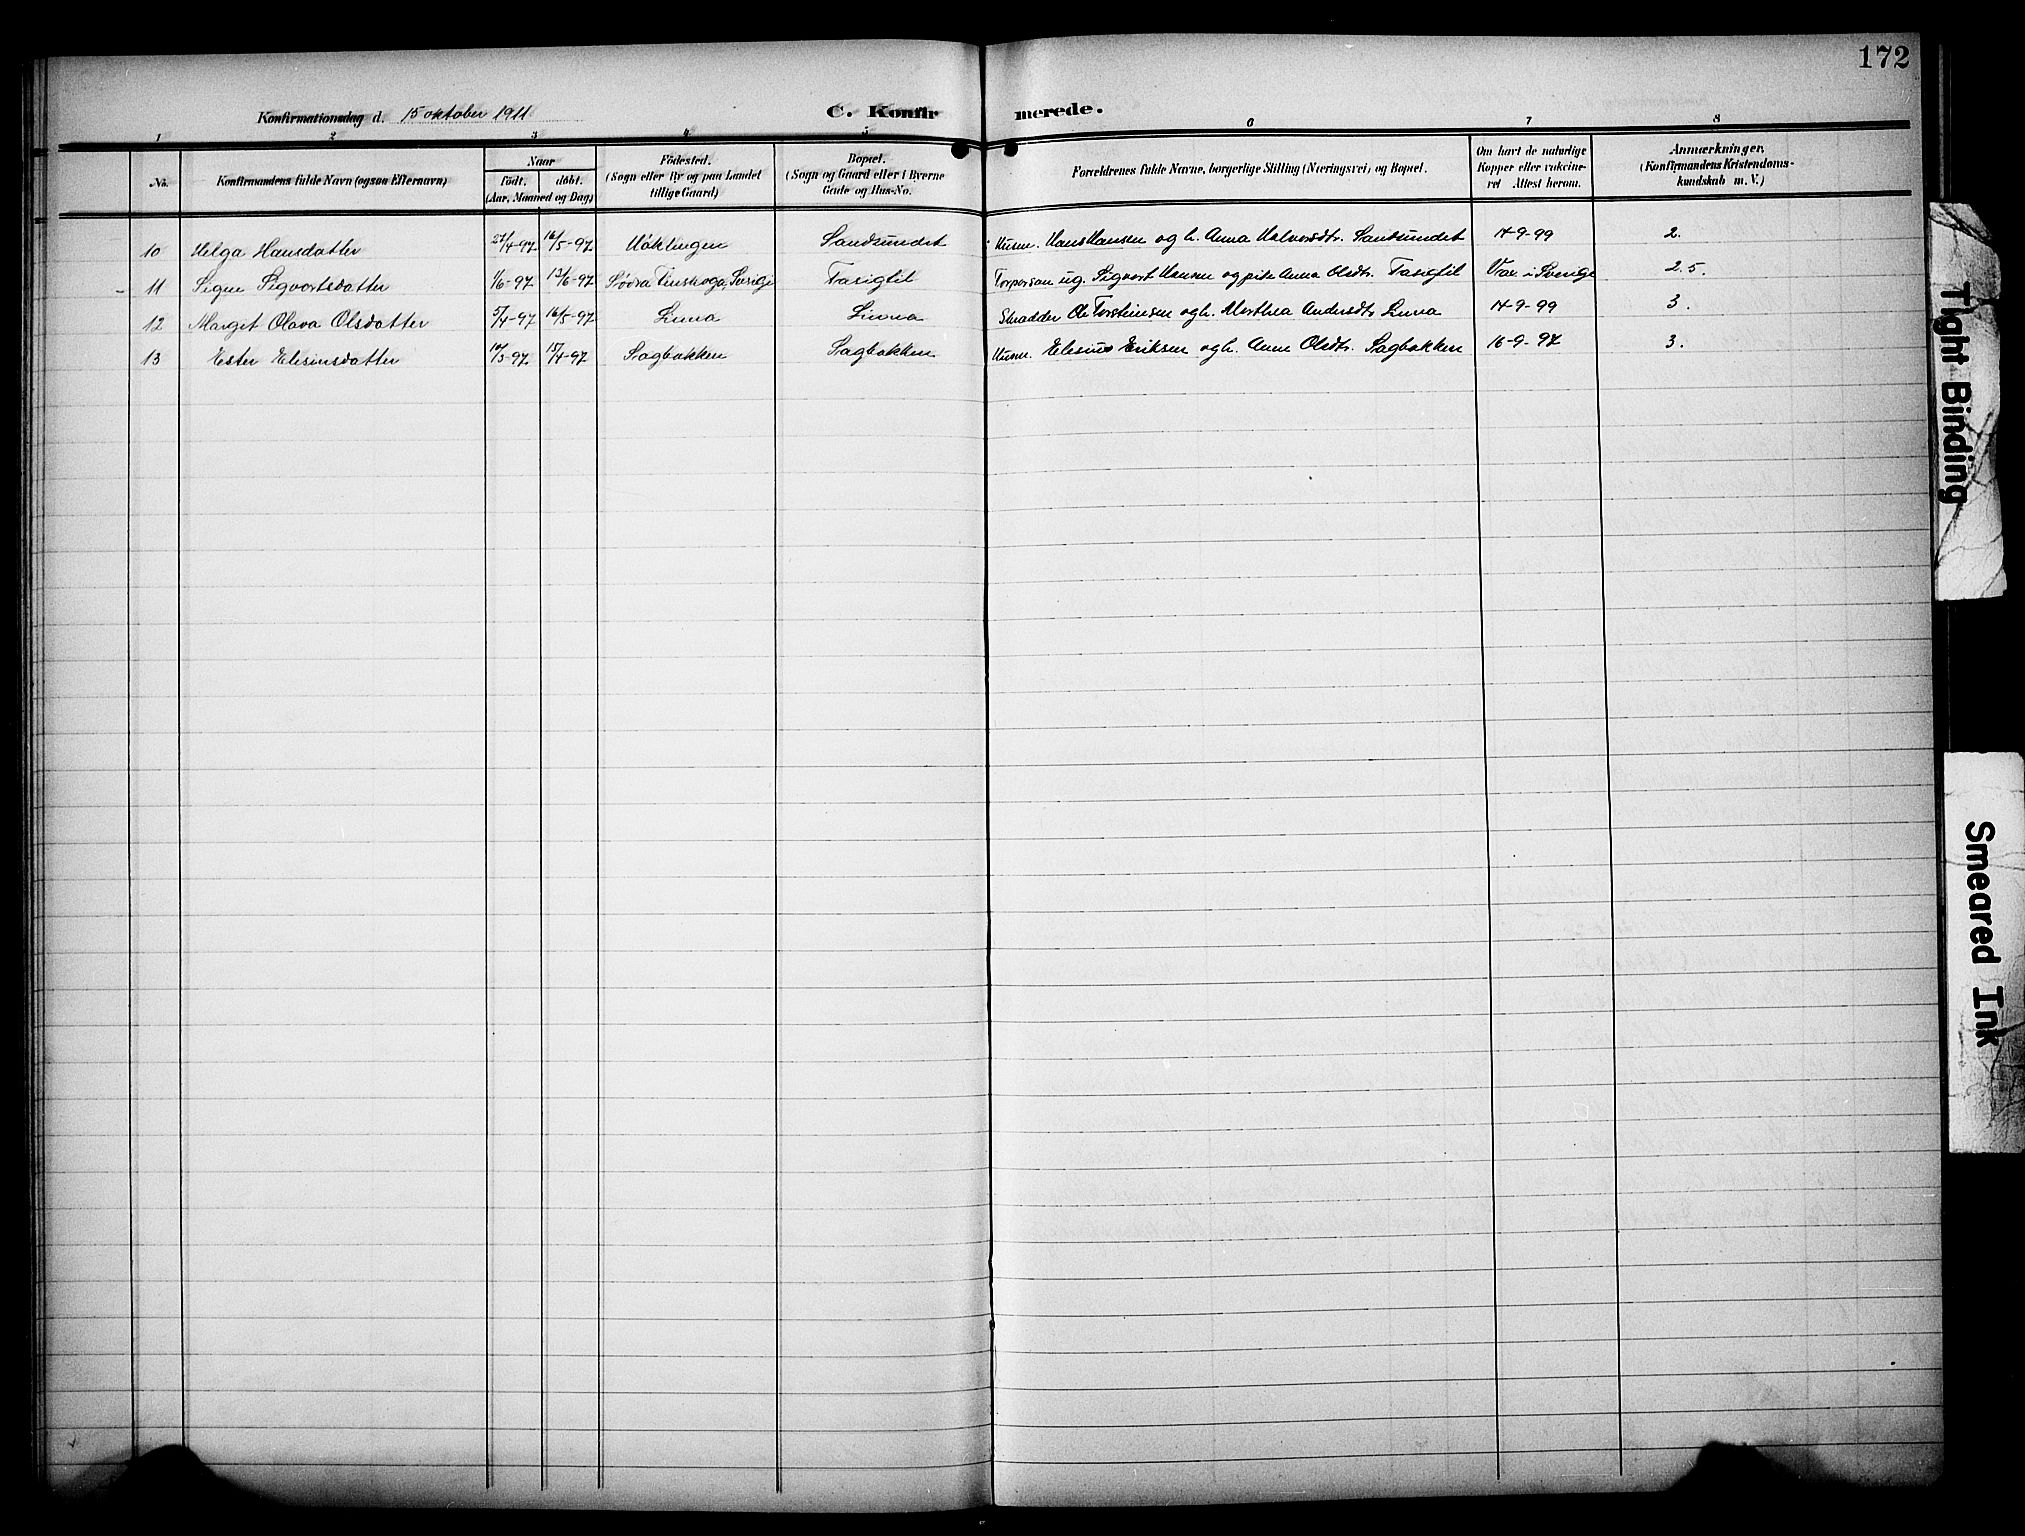 172
Konfirmationsdag d. 15 oktober 1911
C. Konfirmerede.
1 2 3 4 5 6 7 8
No.
Konfirmandens fulde Navn (ogsaa Efternavn)
Naar
Födt. döbt.
(Aar, Maaned og Dag)
Födested.
(Sogn eller By og paa Landet
tillige Gaard)
Bopæl.
(Sogn og Gaard eller i Byerne
Gade og Hus-No.
Forældrenes fulde Navne, borgerlige Stilling (Næringsvei) og Bopæl.
Om havt de naturlige
Kopper eller vakcine-
ret Attest herom.
Anmærkninger.
(Konfirmandens Kristendoms-
kundskab m. V.)
10 Helga Hansdatter 27/4-97 16/5-97 Möklingen Sandsundet Husm. Hans Hansen og h. Anna Halvorsdtr. Sandsundet 14-9-99 2.
11 Signe Sigvartsdatter 1/6-97 13/6-97 Södra Finskoga, Sverige Tasigtil Torperson ug. Sigvart Hansen og pike Anna Olsdtr. Tasigtil Vac. i Sverige 2.5.
12 Margit Olava Olsdatter 5/4-97 16/5-97 Linna Linna Skradder Ole Torsteinsen og h. Marthea Andersdtr. Linna 14-9-99 3.
13 Ester Elesiusdatter /3-97 15/4-97 Sagbakken Sagbakken Husm. Elesius Eriksen og h. Anne Olsdtr. Sagbakken 16-9-97 3.
Tight Binding
Smeared Ink